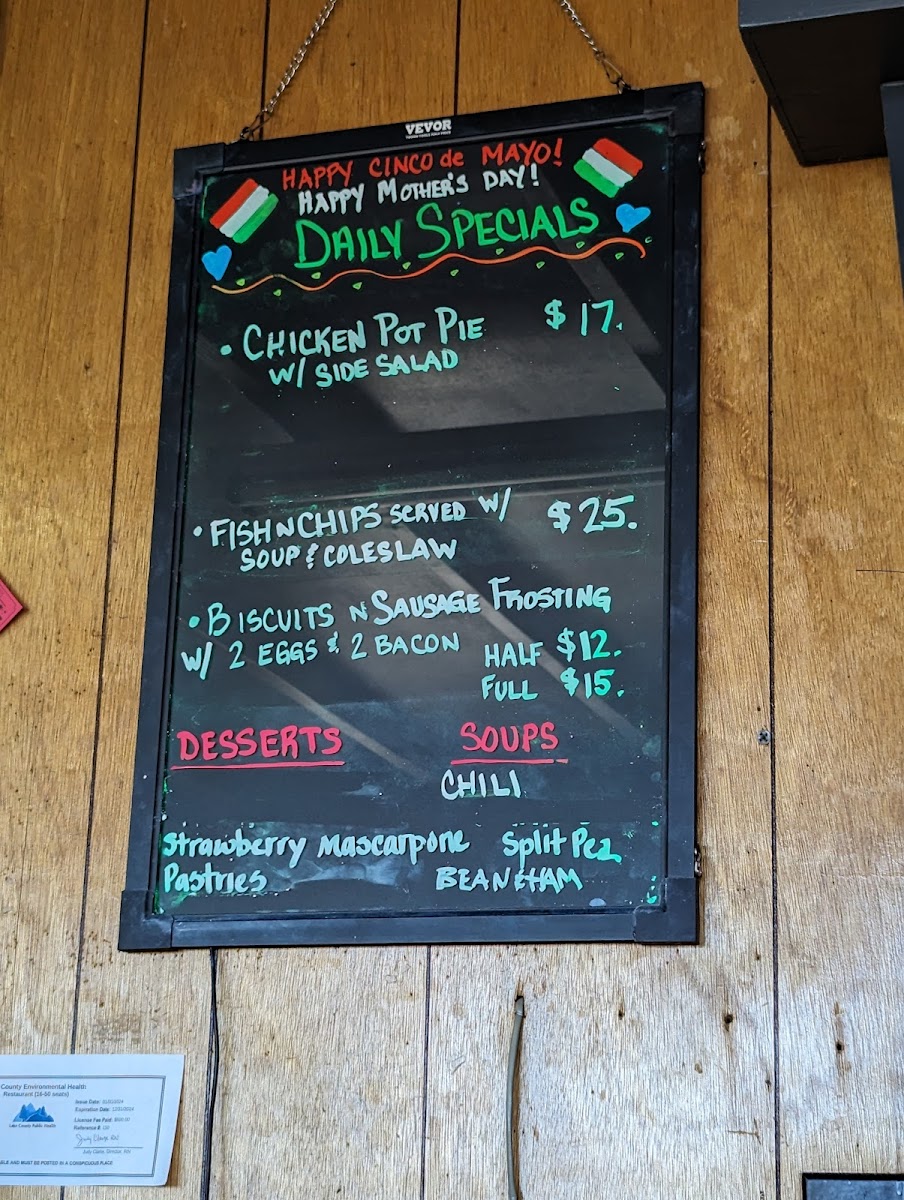 VEVOR
HAPPY CINCO de MAYO!
HAPPY MOTHER'S DAY!
DAILY SPECIALS
• CHICKEN POT PIE $17.
W/ SIDE SALAD
• FISH N CHIPS SERVED W/ $25.
SOUP & COLESLAW
• BISCUITS N SAUSAGE FROSTING
W/ 2 EGGS & 2 BACON HALF $12.
FULL $15.
DESSERTS
SOUPS
CHILI
Strawberry Mascarpone
Pastries
Split Pea
BEAN & HAM
County Environmental Health
Restaurant
Issue Date:
Expiration Date: 12/31/2024
License Fee Paid:
Reference #:
Lake County Public Health
AND MUST BE POSTED IN A CONSPICUOUS PLACE